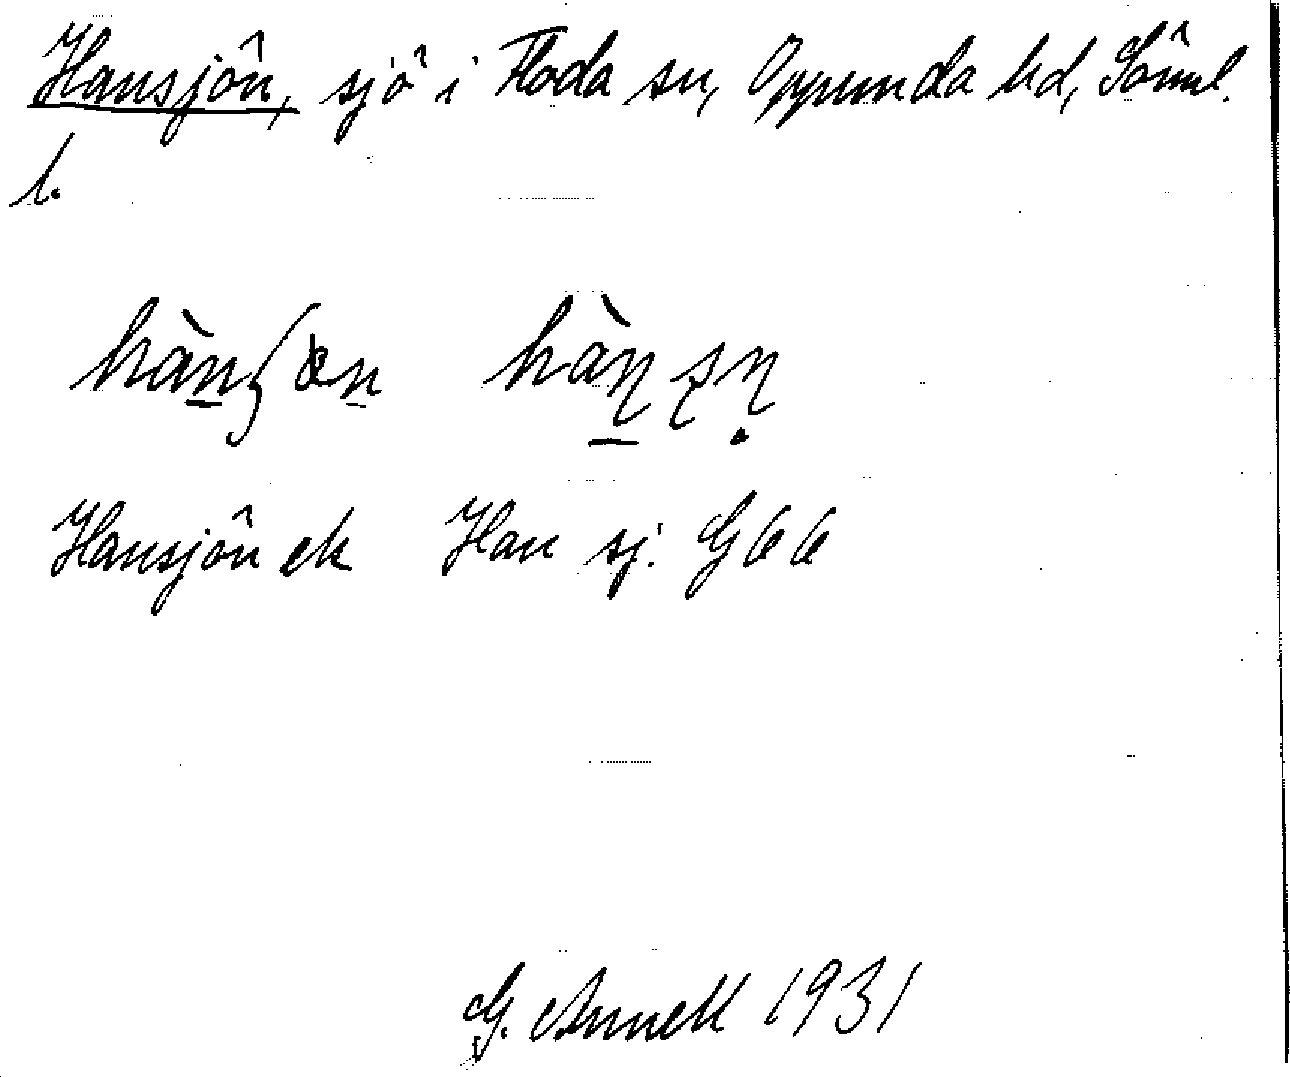 Hansjön, sjö i Floda sn, Oppunda hd, Söml.
l.
hàn̠ʃøn̠ hàɳ̠ʂɳ̣
Hansjön ek Han sj. G 66
G. Annell 1931